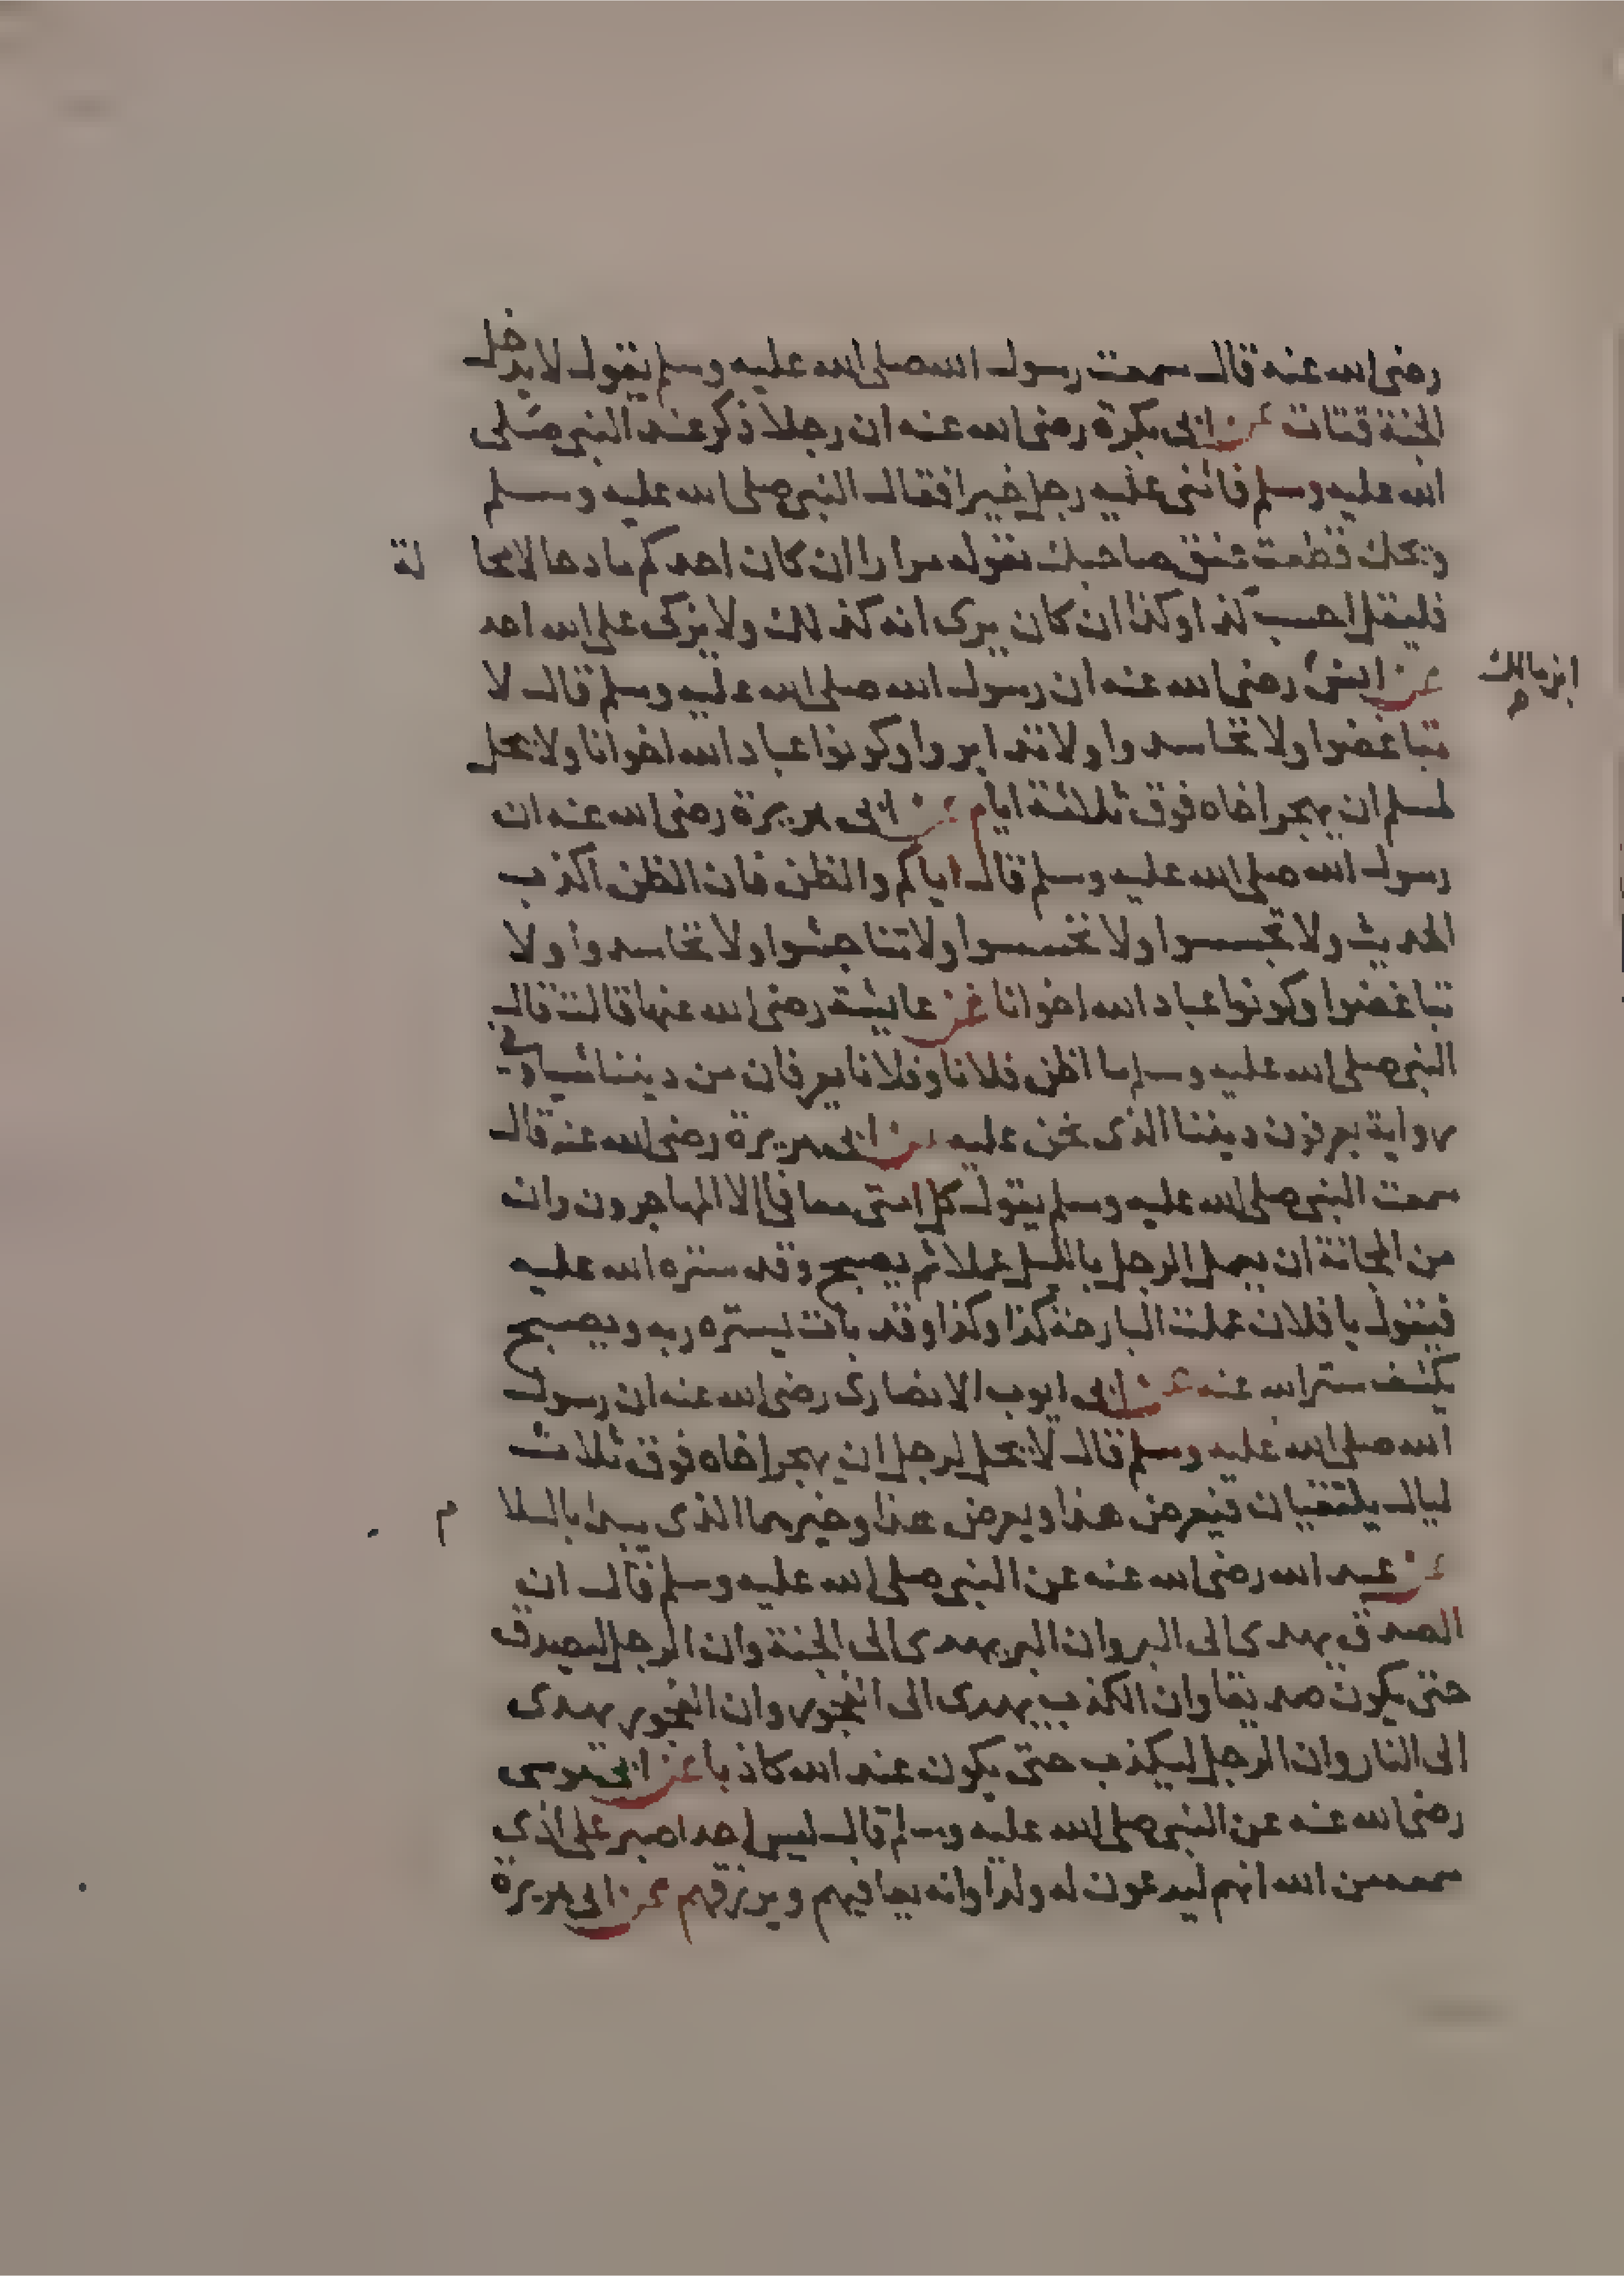 رضى الله عنه قال سمعت رسول الله صلى الله عليه وسلم يقول لا يدخل
الجنة قتات عن ابى بكرة رضى الله عنه ان رجلا ذكر عند النبى صلى
الله عليه وسلم فاثنى عليه رجل خيرا فقال النبى صلى الله عليه وسلم
ويحك قطعت عنق صاحبك يقوله مرارا ان كان احدكم مادحا لا محا لة
فليقل احسب كذا وكذا ان كان يرى انه كذلك ولا يزكى على الله احد
عن انس رضى الله عنه ان رسول الله صلى الله عليه وسلم قال لا
ابن مالك
تباغضوا ولا تحاسدوا ولا تدابروا وكونوا عباد الله اخوانا ولا يحل
لمسلم ان يهجر اخاه فوق ثلاثة ايام عن ابى هريرة رضى الله عنه ان
رسول الله صلى الله عليه وسلم قال اياكم والظن فان الظن اكذب
الحديث ولا تجسسوا ولا تحسسوا ولا تناجشوا ولا تحاسدوا ولا
تباغضوا وكونوا عباد الله اخوانا عن عايشة رضى الله عنها قالت قال
النبى صلى الله عليه وسلم ما اظن فلانا وفلانا يعرفان من ديننا شيا وفى
رواية يعرفون ديننا الذى نحن عليه عن ابى هريرة رضى الله عنه قال
سمعت النبى صلى الله عليه وسلم يقول كل امتى معافى الا المهاجرون وان
من المجانة ان يعمل الرجل بالليل عملا ثم يصبح وقد ستره الله عليه
فيقول يا فلان عملت البارحة كذا وكذا وقد بات يستره ربه ويصبح
يكشف ستر الله عنه عن ابى ايوب الانصارى رضى الله عنه ان رسول
الله صلى الله عليه وسلم قال لا يحل لرجل ان يهجر اخاه فوق ثلاث
ليال يلتقيان فيعرض هذا ويعرض هذا وخيرهما الذى يبدا بالسلا م
عن عبد الله رضى الله عنه عن النبى صلى الله عليه وسلم قال ان
الصدق يهدى الى البر وان البر يهدى الى الجنة وان الرجل ليصدق
حتى يكون صديقا وان الكذب يهدى الى الفجور وان الفجور يهدى
الى النار وان الرجل ليكذب حتى يكون عند الله كاذبا عن ابى موسى
رضى الله عنه عن النبى صلى الله عليه وسلم قال ليس احد اصبر على اذى
سمعه من الله انهم ليدعون له ولدا وانه يعافيهم ويرزقهم عن ابى هريرة